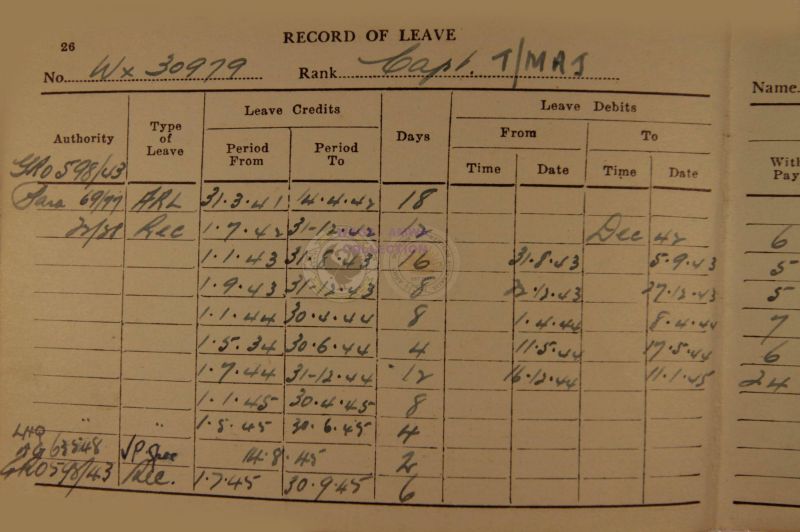 26
RECORD OF LEAVE
No. Wx 30979 Rank Capt. T/MAJ
Name
Leave Credits Leave Debits
Authority Type of Leave Period From Period To Days From To
Time Date Time Date With Pay
GRO 598/43
Para 69/77 ARL 31.3.41 14.4.42 18
Rec 1.7.42 31-12.42 12 Dec 42 6
1.1.43 31.8.43 16 31.8.43 5.9.43 5
1.9.43 31-12.43 8 22.12.43 27.12.43 5
1.1.44 30.4.44 8 1.4.44 8.4.44 7
1.5.34 30.6.44 4 11.5.44 17.5.44 6
1.7.44 31-12.44 12 16.12.44 11.1.45 24
1.1.45 30.4.45 8
" " 1.5.45 30.6.45 4
LHQ
AG 63548 VP Spec 14.8.45 2
GRO 598/43 Rec. 1.7.45 30.9.45 6
COLLECTION